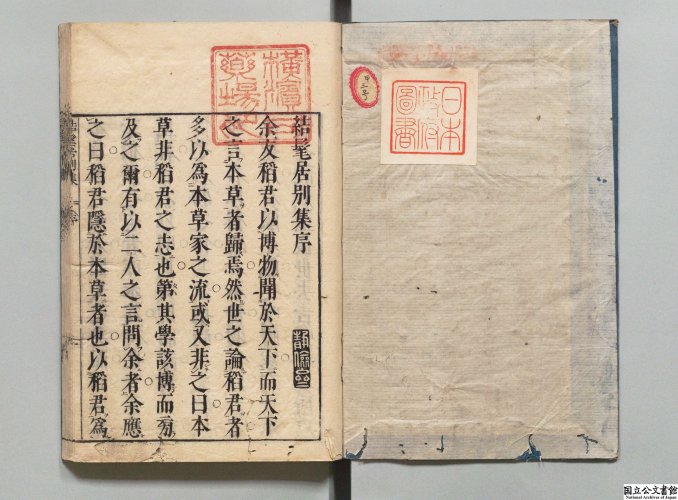 日本
政府
圖書
結髦居別集序
余友稻君以博物聞於天下而天下
之言本草者歸焉然世之論稻君者
多以爲本草家之流或又非之曰本
草非稻君之志也第其學該博而旁
及之爾有以二人之言問余者余應
之曰稻君隱於本草者也以稻君爲
国立公文書館
National Archives of Japan